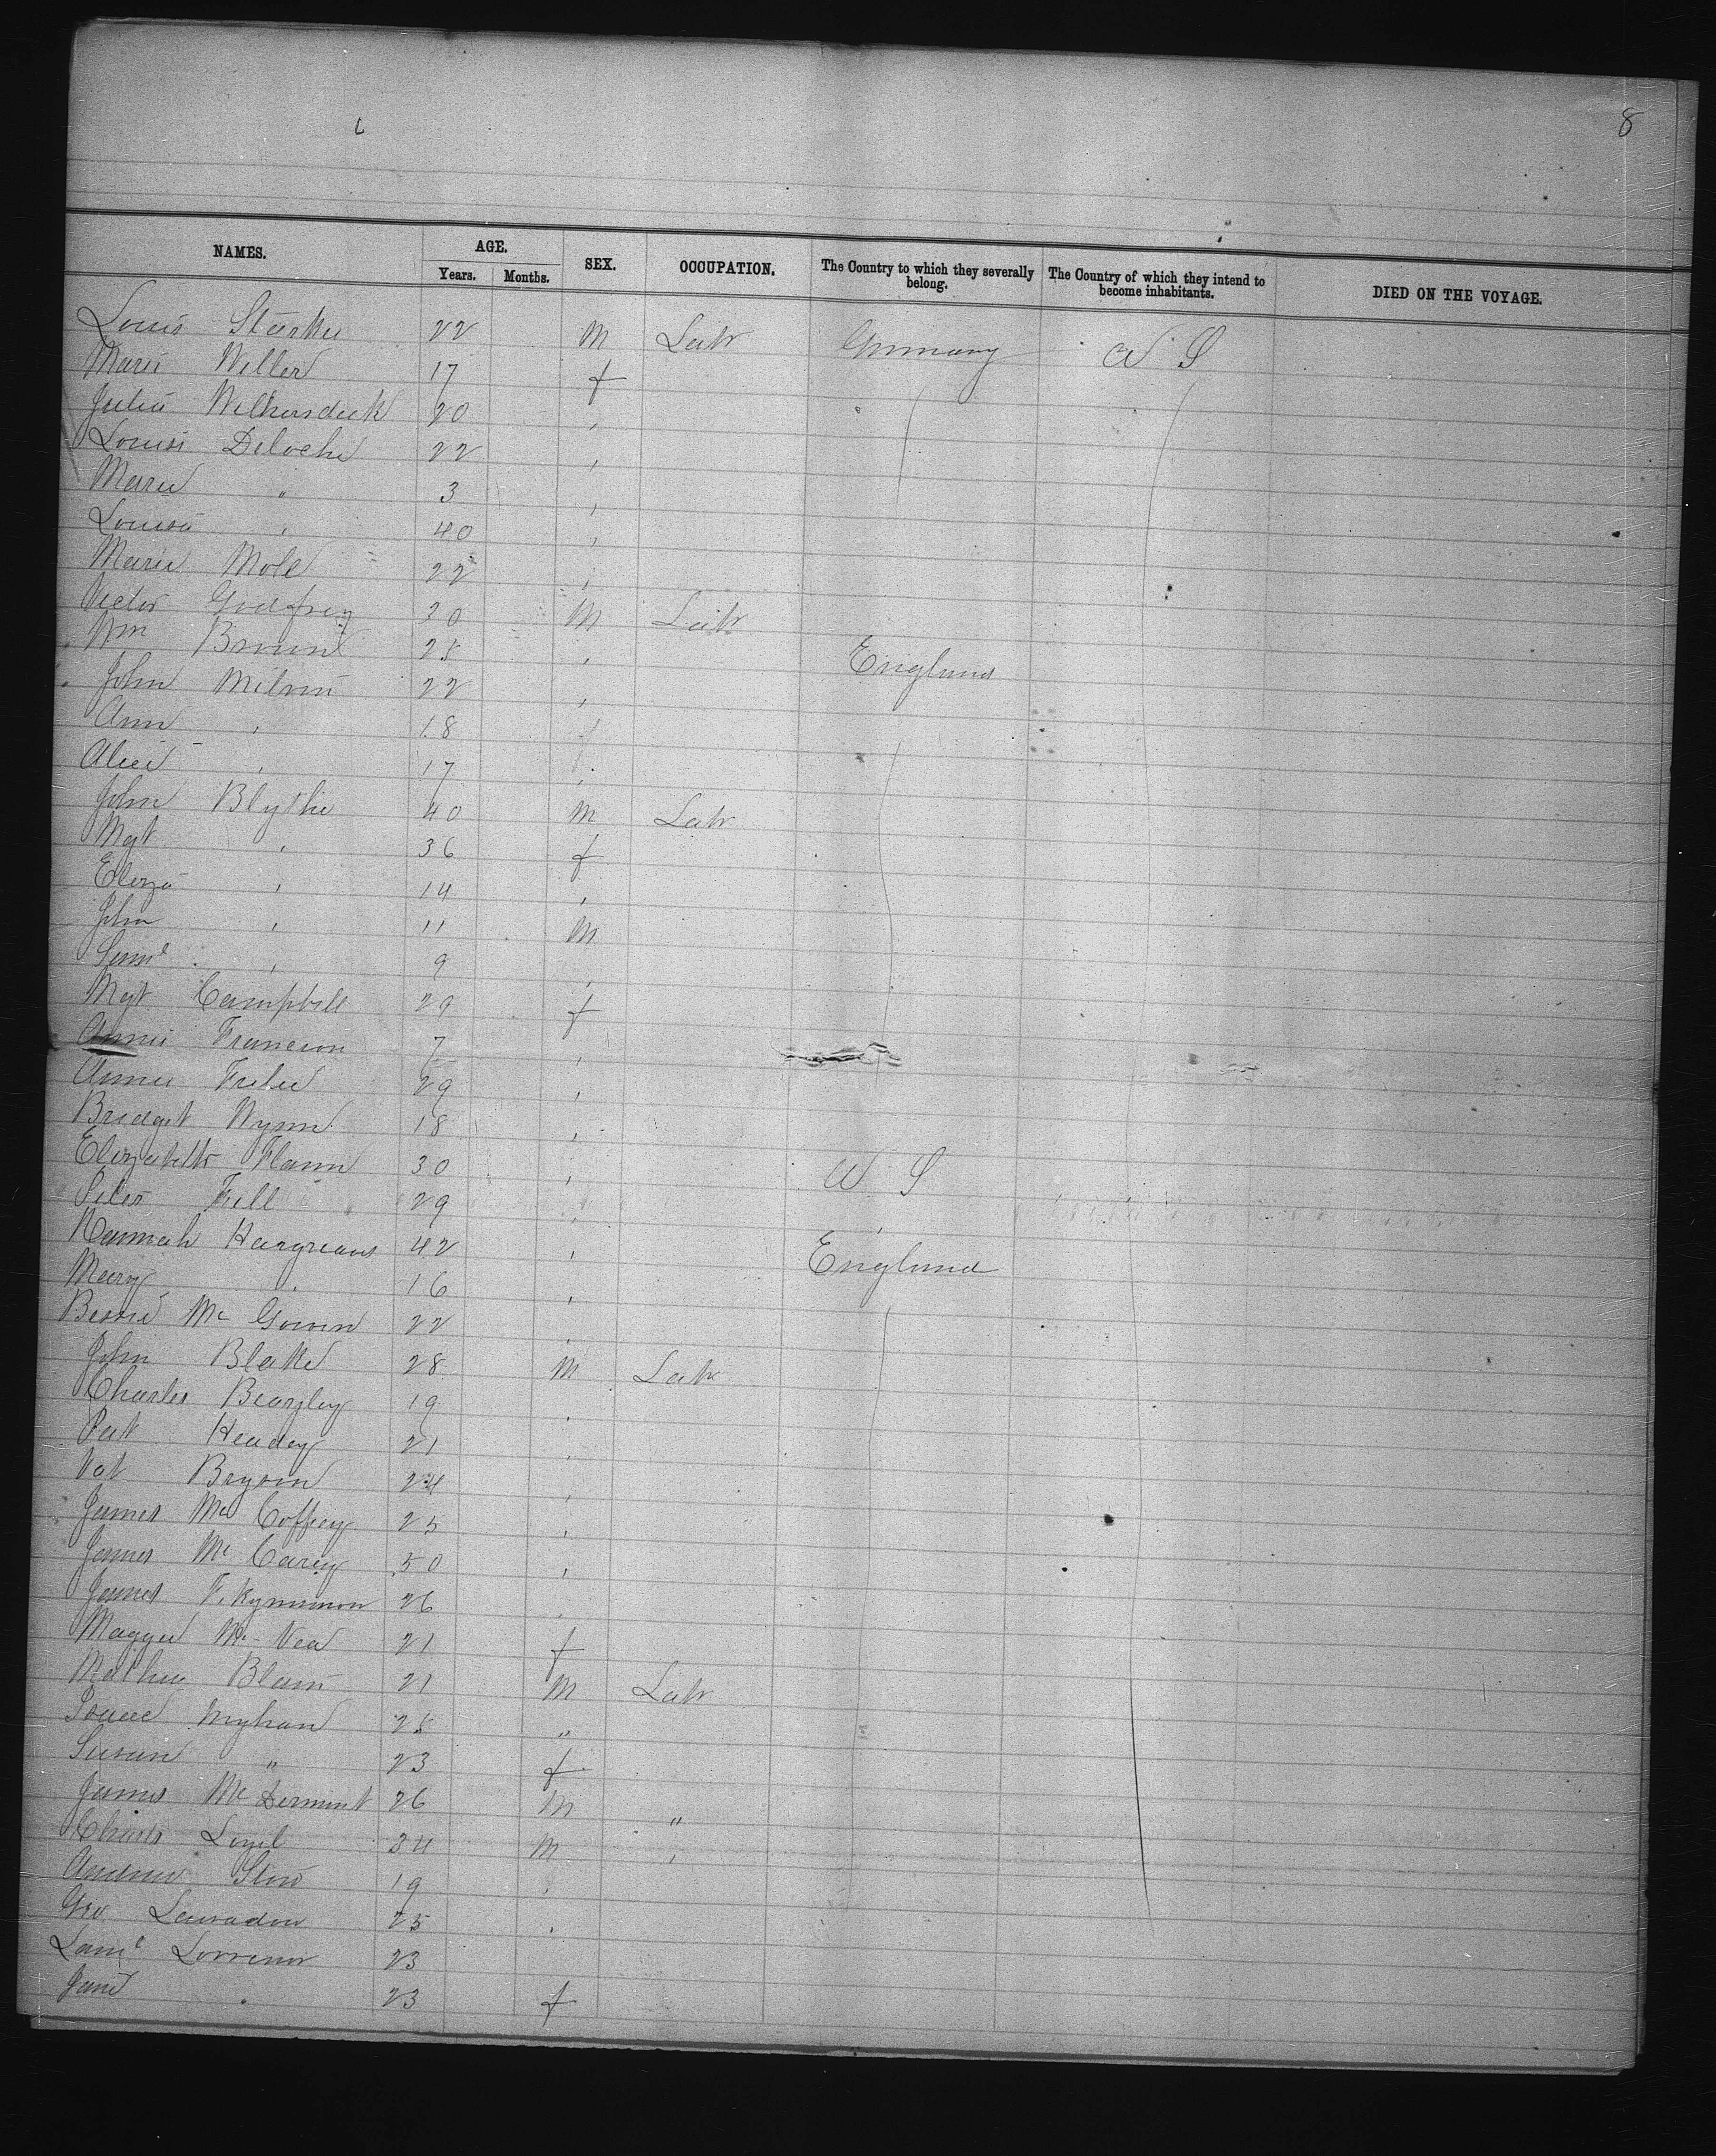 8
NAMES. AGE. Years. Months. SEX. OCCUPATION. The Country to which they severally belong. The Country of which they intend to become inhabitants. DIED ON THE VOYAGE.
Louis 22 M Labr Germany U S
Marie Weller 17 f
Julia 20 ,
Louise Deloche 22 ,
Marie " 3 ,
Louisa , 40 ,
Marie Mole 22 ,
Victor Godfrey 30 M Labr
Wm 25 , England
John 22 ,
Ann , 18
Alice , 17 ,
John Blythe 40 M Labr
Mgt , 36 f
Eliza , 14 ,
John , 11 M
Saml , 9 ,
Mgt Campbell 29 f
Annie 7 ,
Annie 29 ,
Bridget Wynn 18 ,
Elizabeth Flann 30 , U S
Peter Fell 29 , ,
Hannah Hargreaves 42 , England
Mary , 16 ,
Bessie Mc Gowen 22 ,
John Blake 28 M Labr
Charles Beazley 19 ,
Pat Headey 21 ,
Pat Bryson 24 ,
James Mc Coffrey 25 ,
James Mc Carey 50 ,
James 26 ,
Maggie Mc Vea 21 f
Mathew 21 M Labr
Isaac 25 "
Susan " 23 f
James Mc Dermint 26 M "
Charls 34 M ,
Andrew 19 ,
Geo 25 ,
Saml 23
Jane , 23 f